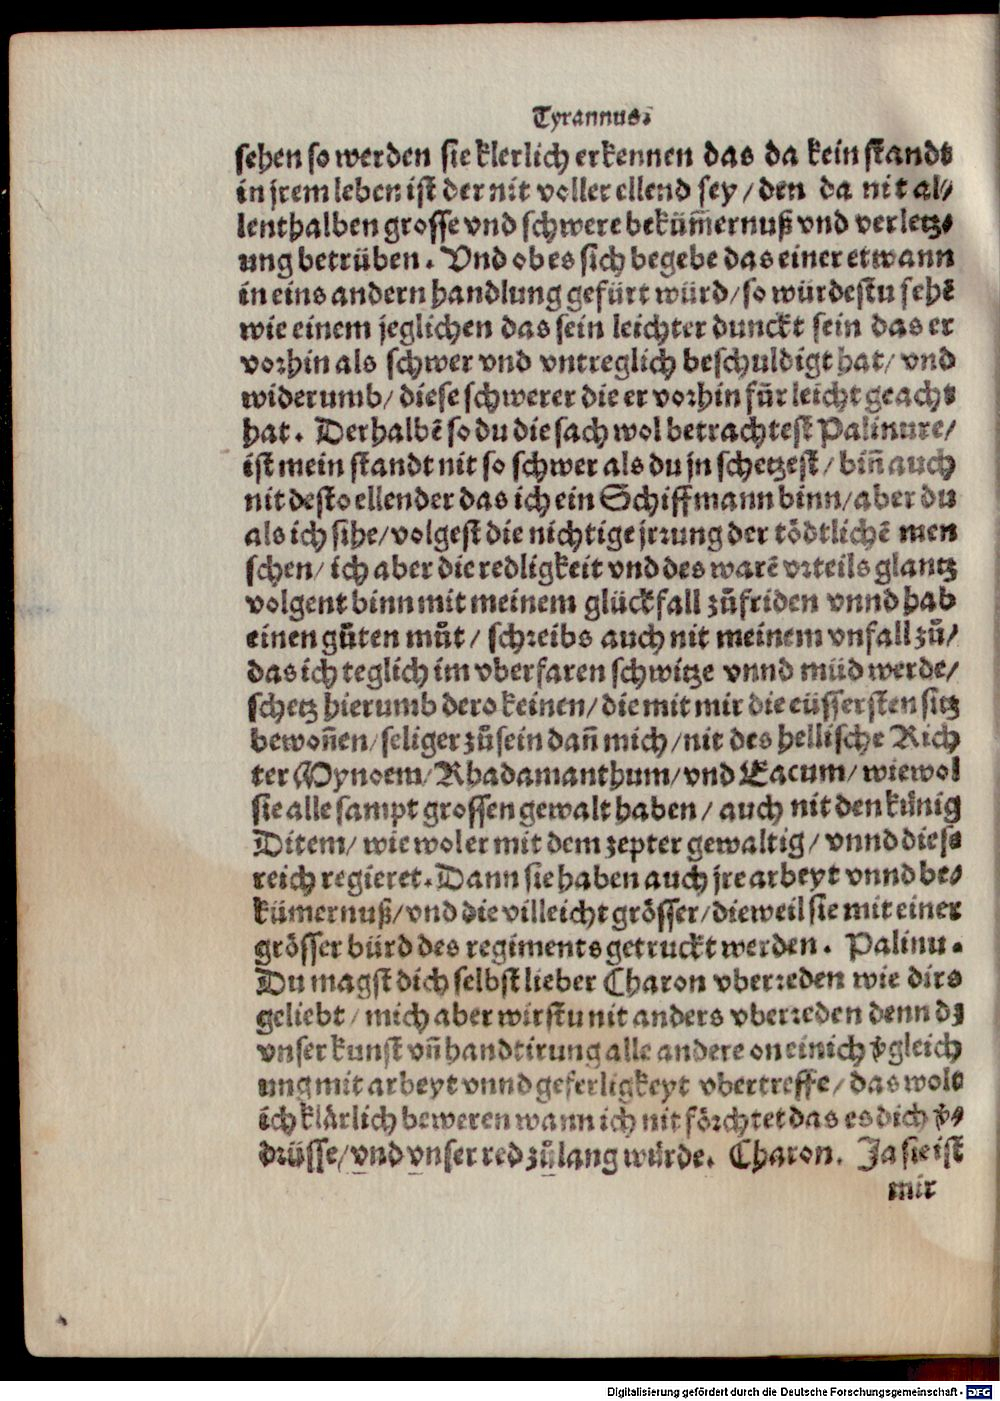 Tyrannus.
sehen so werden sie klerlich erkennen das da kein standt
in jrem leben ist der nit voller ellend sey / den da nit al⸗
lenthalben grosse vnd schwere beküm̃ernuß vnd verletz⸗
ung betrüben. Vnd ob es sich begebe das einer etwann
in eins andern handlung gefürt würd / so würdestu sehẽ
wie einem jeglichen das sein leichter dunckt sein das er
vorhin als schwer vnd vntreglich beschuldigt hat / vnd
widerumb / diese schwerer die er vorhin für leicht geacht
hat. Derhalbẽ so du die sach wol betrachtest Palinure /
ist mein standt nit so schwer als du jn schetzest / biñ auch
nit desto ellender das ich ein Schiffmann binn / aber du
als ich sihe / volgest die nichtige jrrung der tödtlichẽ men
schen / ich aber die redligkeit vnd des warẽ vrteils glantz
volgent binn mit meinem glückfall zůfriden vnnd hab
einen gůten můt / schreibs auch nit meinem vnfall zů /
das ich teglich im vberfaren schwitze vnnd müd werde /
schetz hierumb dero keinen / die mit mir die eüssersten sitz
bewoñen / seliger zů sein dañ mich / nit des hellische Rich
ter Mynoem / Rhadamanthum / vnd Eacum / wiewol
sie alle sampt grossen gewalt haben / auch nit den künig
Ditem / wie wol er mit dem zepter gewaltig / vnnd diese
reich regieret. Dann sie haben auch jre arbeyt vnnd be⸗
kümernuß / vnd die villeicht grösser / dieweil sie mit einer
grösser bürd des regiments getruckt werden. Palinu.
Du magst dich selbst lieber Charon vberreden wie dirs
geliebt / mich aber wirstu nit anders vberreden denn dz
vnser kunst vñ handtirung alle andere on einich v̈gleich
ung mit arbeyt vnnd geferligkeyt vbertreffe / das wolt
ich klärlich beweren wann ich nit förchtet das es dich v̈⸗
drüsse / vnd vnser red zů lang würde. Charon. Ja sie ist
mir
Digitalisierung gefördert durch die Deutsche Forschungsgemeinschaft - DFG